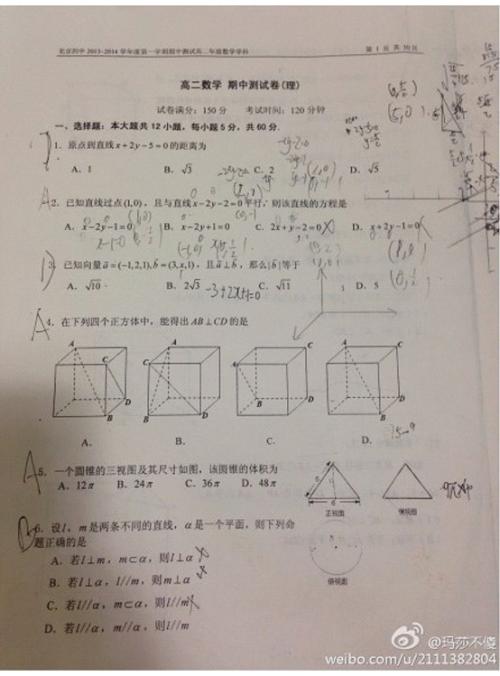 北京四中 2013-2014 学年度第一学期期中测试高二年级数学学科 第 1 页 共 10 页
高二数学 期中测试卷(理)
试卷满分：150 分 考试时间：120 分钟
一、选择题：本大题共 12 小题，每小题 5 分，共 60 分
D 1. 原点到直线 x+2y-5=0 的距离为
A. 1 B. √3 C. 2 D. √5
A 2. 已知直线过点(1,0)，且与直线 x-2y-2=0 平行，则该直线的方程是
A. x-2y-1=0 B. x-2y+1=0 C. 2x+y-2=0 D. x+2y-1=0
D 3. 已知向量 a=(-1,2,1),b=(3,x,1)，且 a⊥b，那么|b|等于
A. √10 B. 2√3 -3+2x+1=0 C. √11 D. 5
A 4. 在下列四个正方体中，能得出 AB⊥CD 的是
A C D B
A C B D
A C B D
A C B D
A. B. C. D.
A 5. 一个圆锥的三视图及其尺寸如图，该圆锥的体积为
A. 12π B. 24π C. 36π D. 48π
正视图 侧视图
俯视图
6. 设 l，m 是两条不同的直线，α 是一个平面，则下列命
题正确的是
A. 若 l⊥m，m⊂α，则 l⊥α
B. 若 l⊥α，l//m，则 m⊥α
C. 若 l//α，m⊂α，则 l//m
D. 若 l//α，m//α，则 l//m
@玛莎不傻
weibo.com/u/2111382804